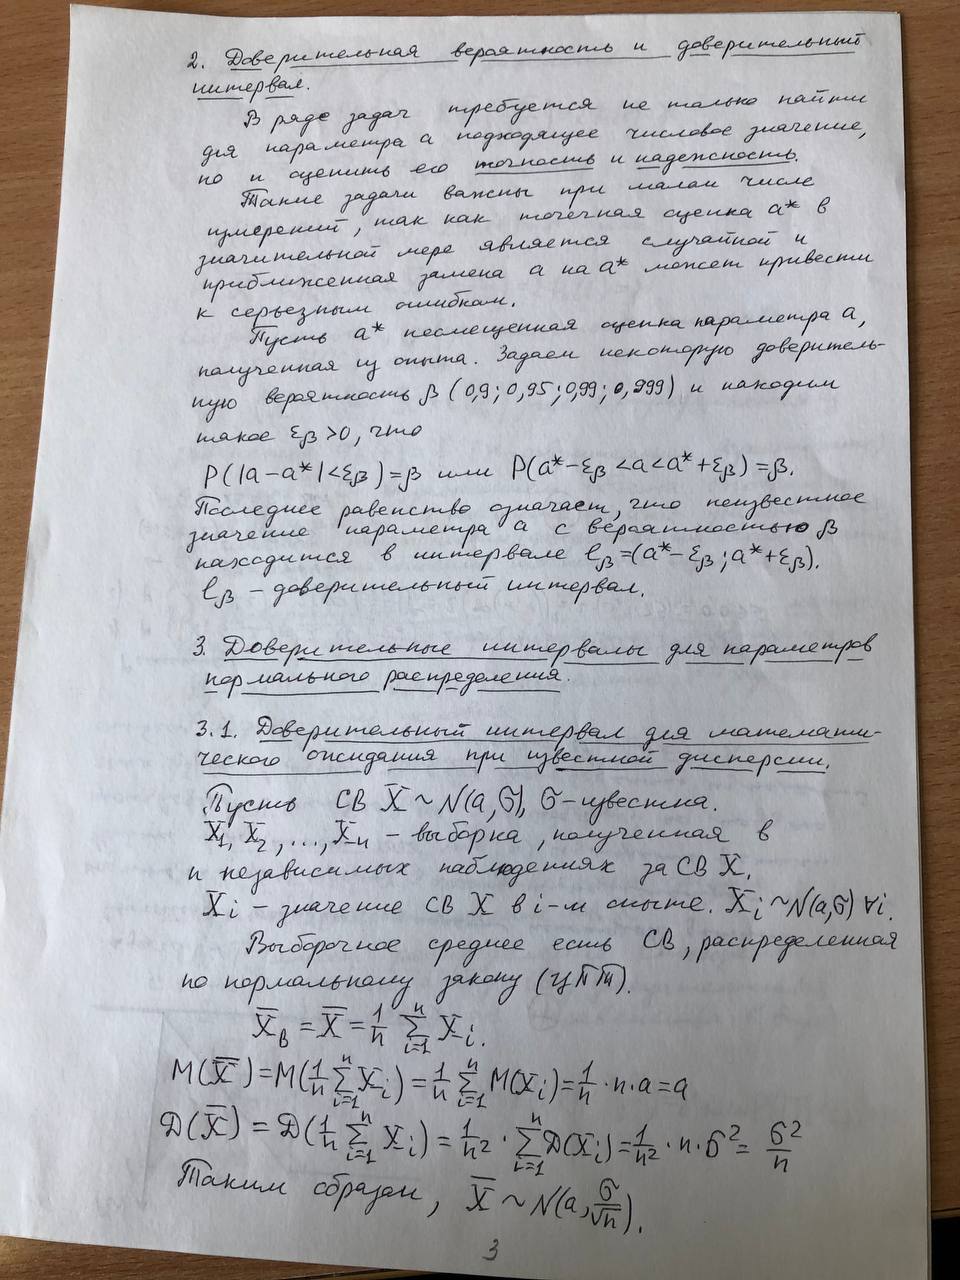 2. Доверительная вероятность и доверительный
интервал.
В ряде задач требуется не только найти
для параметра a подходящее числовое значение,
но и оценить его точность и надежность.
Такие задачи важны при малом числе
измерений, так как точечная оценка a* в
значительной мере является случайной и
приближенная замена a на a* может привести
к серьезным ошибкам.
Пусть a* несмещенная оценка параметра a,
полученная из опыта. Задаем некоторую доверитель-
ную вероятность β (0,9; 0,95; 0,99; 0,999) и находим
такое ε_β > 0, что
P(|a - a*| < ε_β) = β или P(a* - ε_β < a < a* + ε_β) = β.
Последнее равенство означает, что неизвестное
значение параметра a с вероятностью β
находится в интервале l_β = (a* - ε_β; a* + ε_β).
l_β – доверительный интервал.
3. Доверительные интервалы для параметров
нормального распределения.
3.1. Доверительный интервал для математи-
ческого ожидания при известной дисперсии.
Пусть СВ X ~ N(a, σ), σ - известна.
X₁, X₂, ..., Xₙ – выборка, полученная в
n независимых наблюдениях за СВ X.
Xᵢ – значение СВ X в i-м опыте. Xᵢ ~ N(a, σ) ∀i.
Выборочное среднее есть СВ, распределенная
по нормальному закону (ЦПТ).
X̅_В = X̅ = 1/n ∑_{i=1}^{n} Xᵢ.
M(X̅) = M(1/n ∑_{i=1}^{n} Xᵢ) = 1/n ∑_{i=1}^{n} M(Xᵢ) = 1/n · n · a = a
D(X̅) = D(1/n ∑_{i=1}^{n} Xᵢ) = 1/n² · ∑_{i=1}^{n} D(Xᵢ) = 1/n² · n · σ² = σ²/n
Таким образом, X̅ ~ N(a, σ/√n).
3